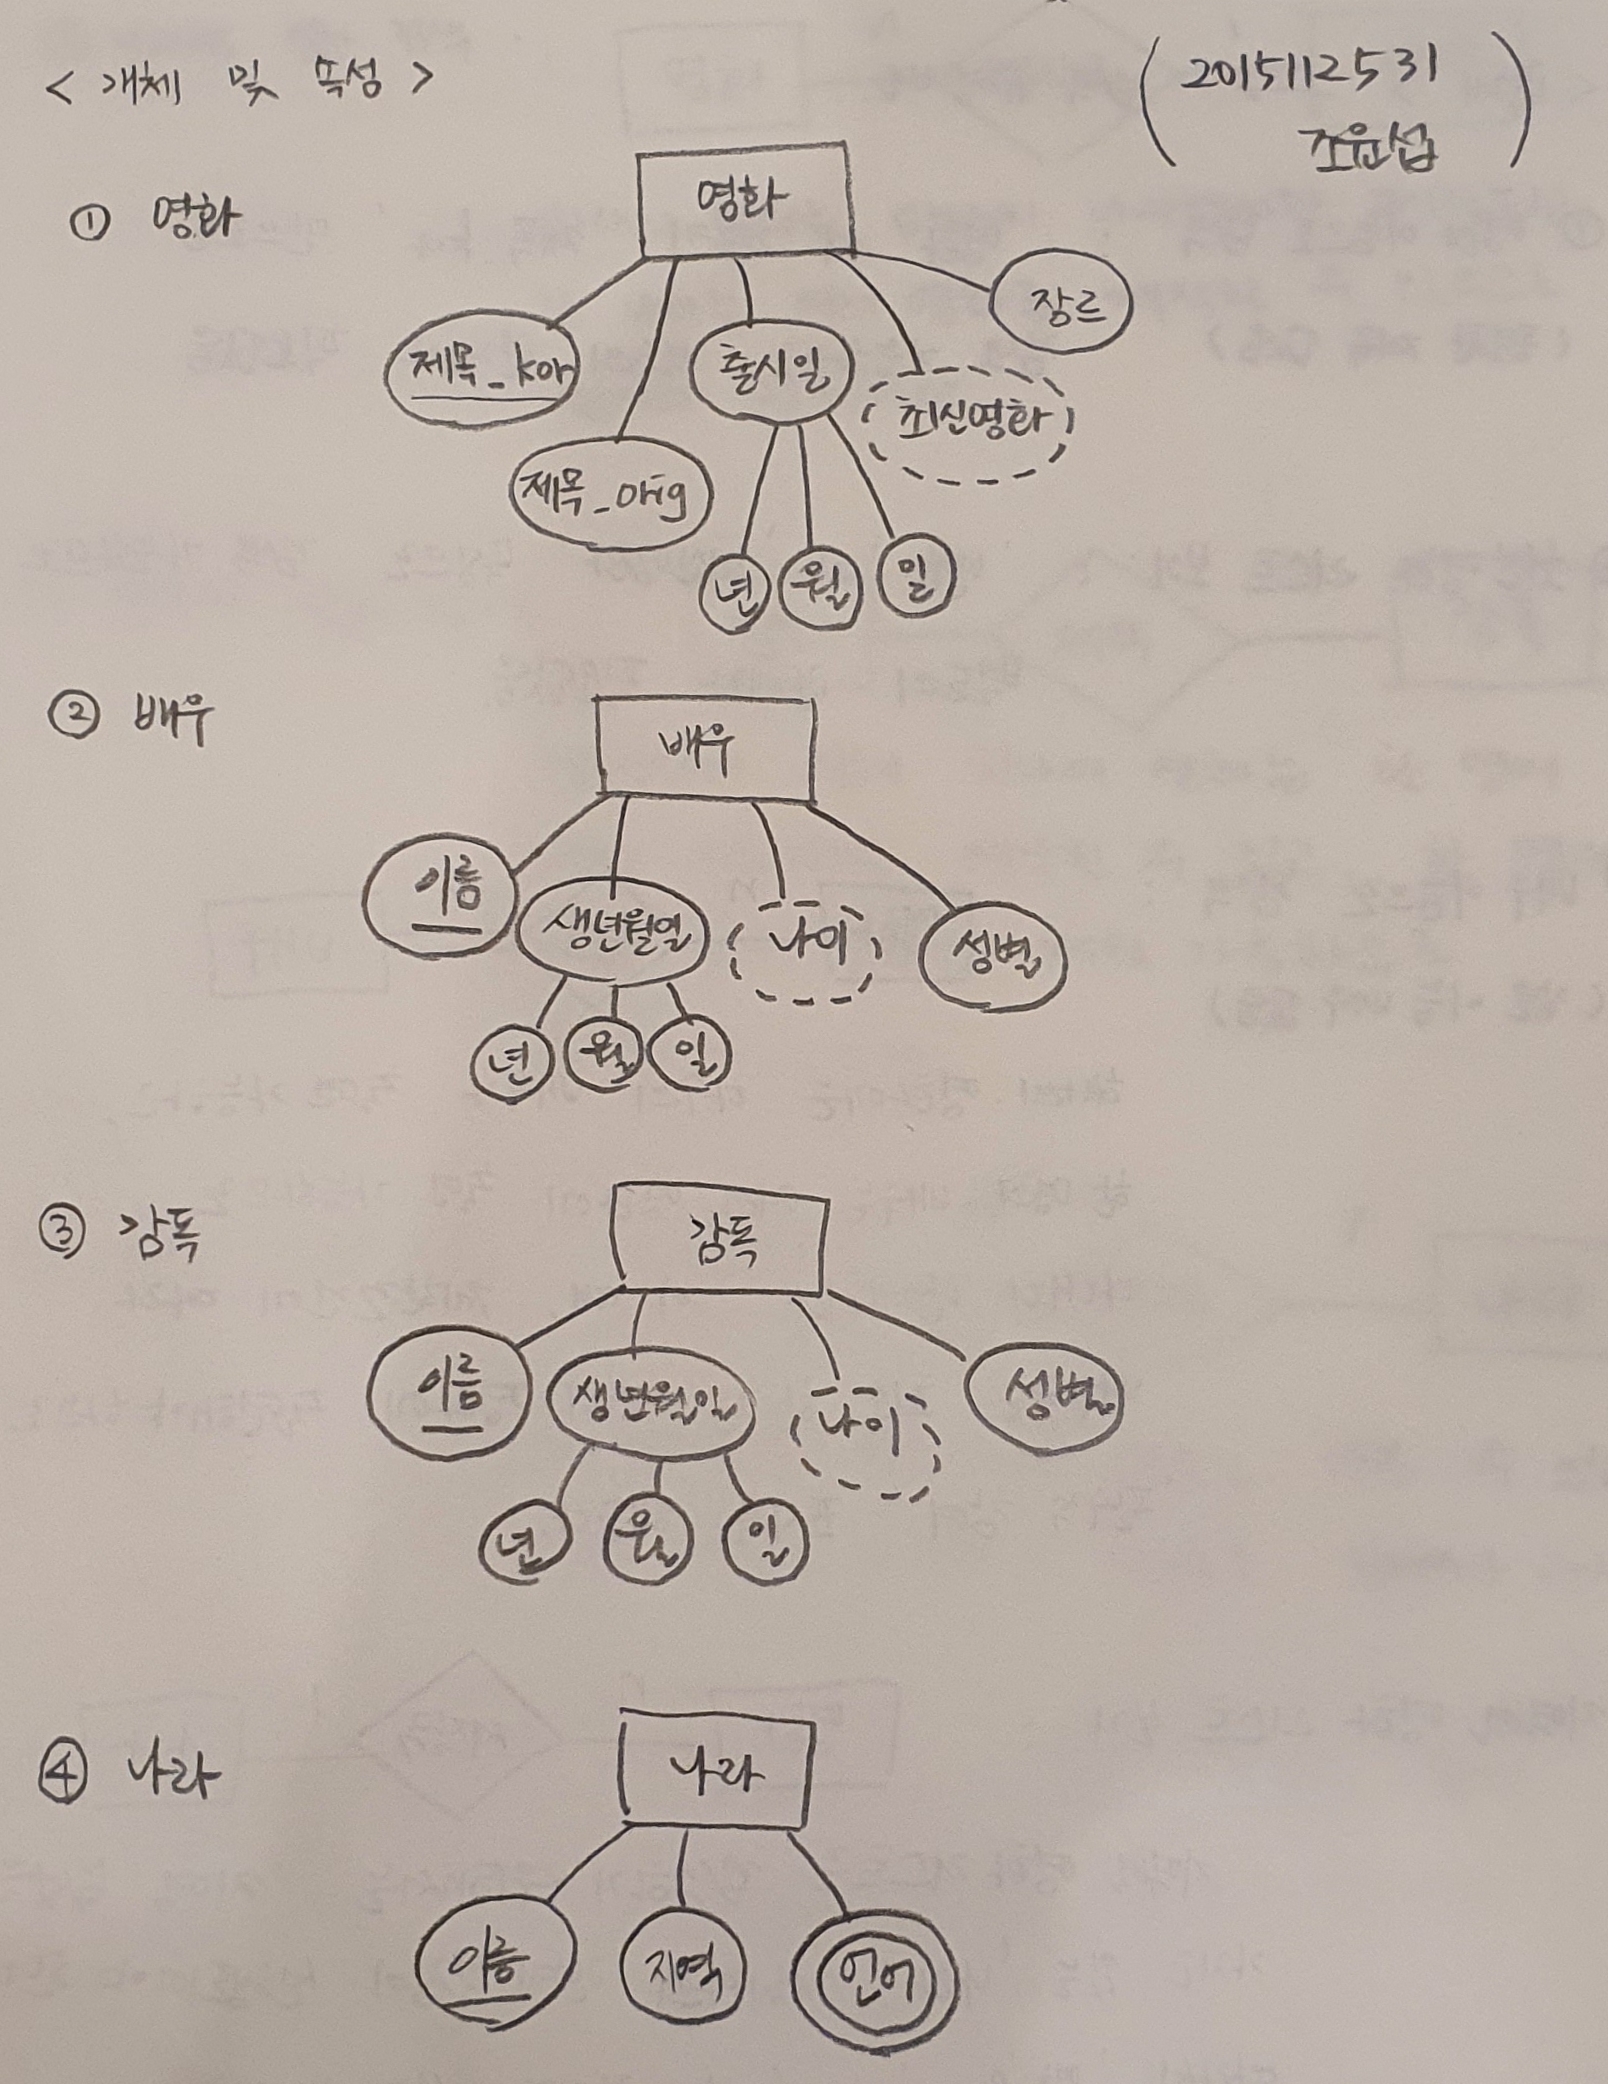 < 개체 및 특성 >
( 2015112531
조윤섭 )
① 영화
영화
제목_kor
제목_orig
출시일
최신영화
장르
년 월 일
② 배우
배우
이름
생년월일
나이
성별
년 월 일
③ 감독
감독
이름
생년월일
나이
성별
년 월 일
④ 나라
나라
이름
지역
언어